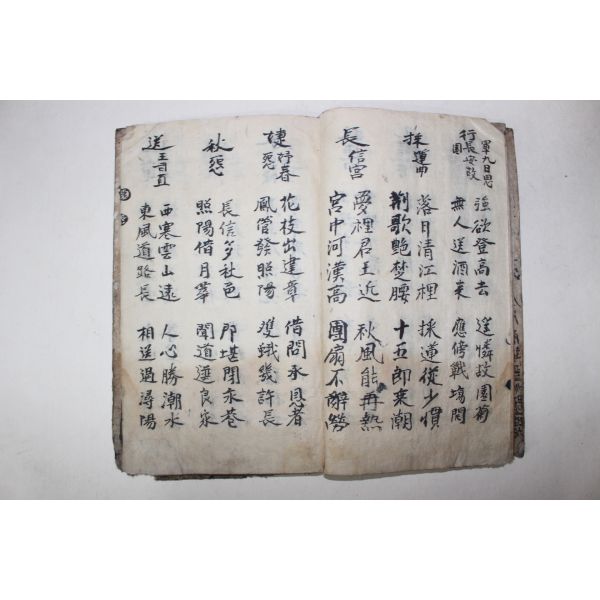 行軍九日思長安故園
強欲登高去 遙憐故園菊
無人送酒來 應傍戰場開
採蓮曲
落日清江裡 採蓮從少慣
荆歌艶楚腰 十五即乘潮
長信宮
愛裡君王近 秋風能再熱
宮中河漢高 團扇不辭勞
婕妤春怨
花枝出建章 借問承恩者
鳳管發照陽 雙蛾幾許長
秋怨
長信多秋色 即堪閉永巷
照陽借月華 聞道選良家
送王司直
西塞雲山遠 人心勝潮水
東風道路長 相送過潯陽